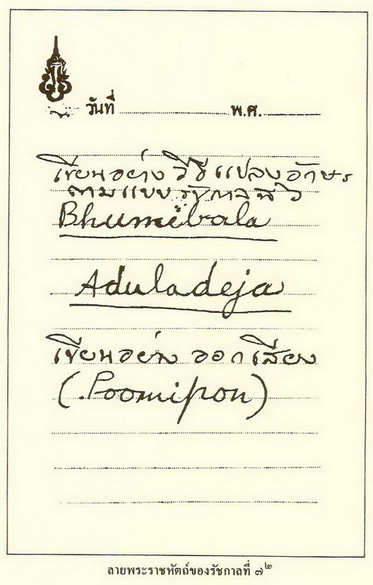 วันที่ พ.ศ.
เขียนอย่าง วิธีแปลงอักษร
ตามแบบ รัชกาลที่ ๖
Bhumibala
Aduladeja
เขียนอย่าง ออกเสียง
(Poomipon)
ลายพระราชหัตถ์ของรัชกาลที่ ๗๒